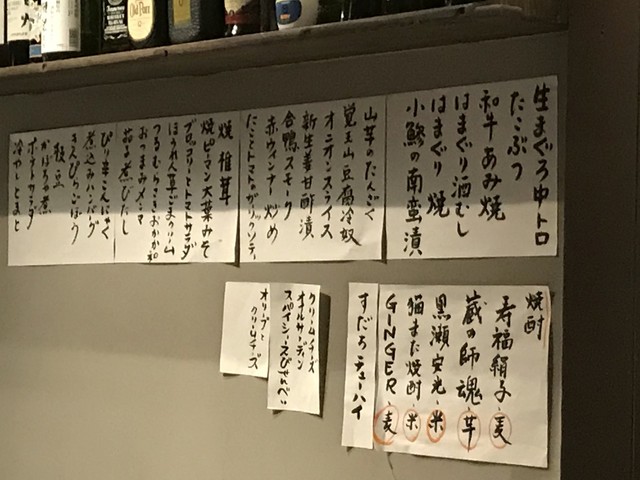 生まぐろ中トロ
たこぶつ
和牛あみ焼
はまぐり酒むし
はまぐり 焼
小鯵の南蛮漬
山芋のたんざく
覚王山豆腐冷奴
オニオンスライス
新生姜甘酢漬
合鴨スモーク
赤ウィンナー炒め
たことトマトのガーリックソテー
焼 椎茸
焼ピーマン大葉みそ
ブロッコリーとトマトサラダ
ほうれん草ごまクリーム
つるむらさきおかか和
おつまみメンマ
茄子煮びたし
ぴり辛こんにゃく
煮込みハンバーグ
きんぴらごぼう
枝豆
かぼちゃ煮
ポテトサラダ
冷やしとまと
焼酎
寿福絹子・麦
蔵の師魂・芋
黒瀬安光・米
猫また焼酎・米
GINGER・麦
すだちチューハイ
クリームチーズ
オイルサーディン
スパイシーえびせんべい
オリーブと
クリームチーズ
Old Parr